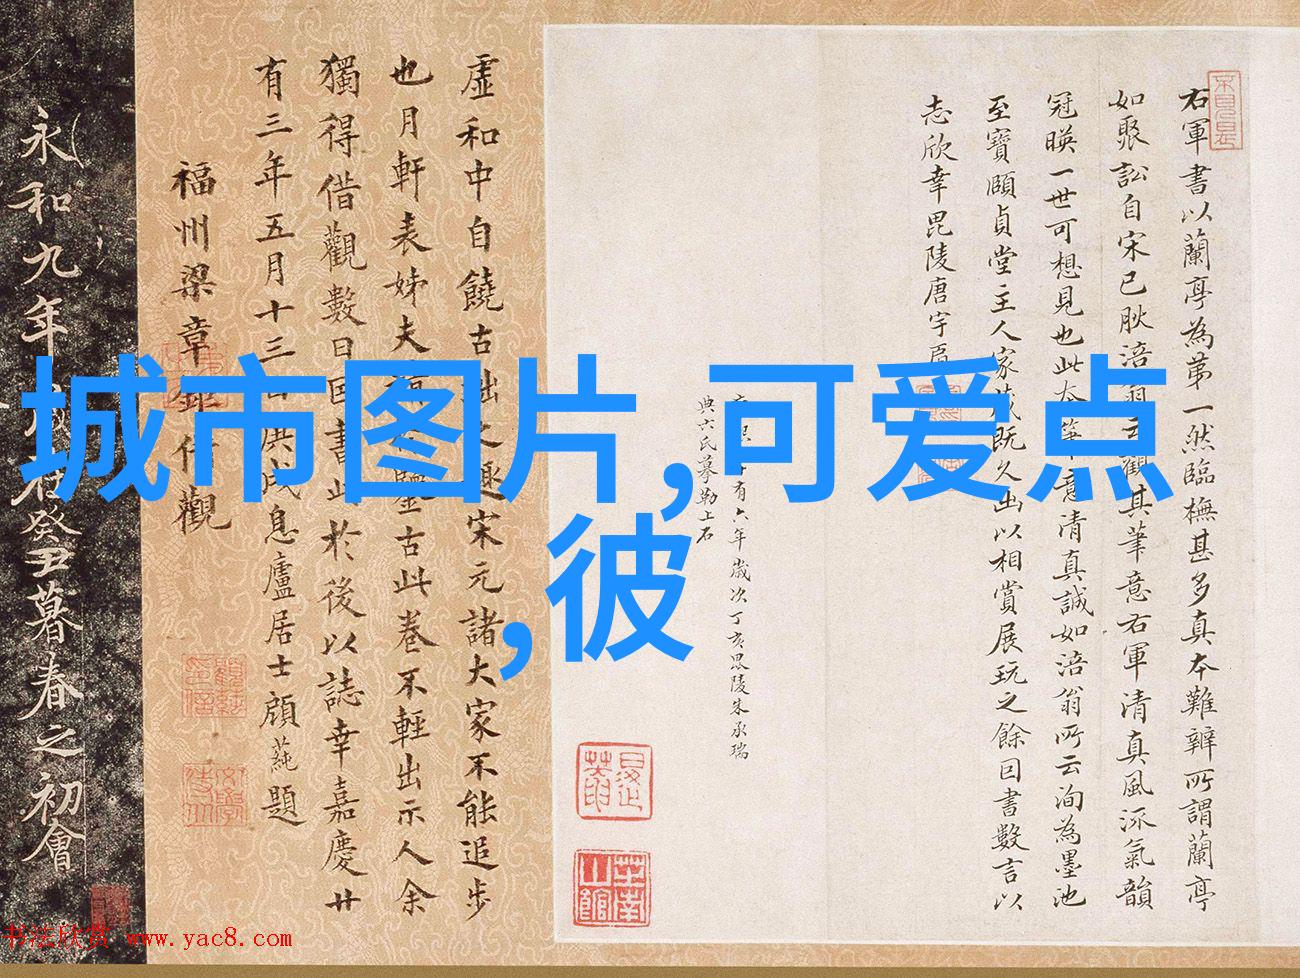 右軍書以蘭亭為苐一然臨橅甚多真本難辨所謂蘭亭
如聚訟自宋已耿涪翁云觀其筆意右軍清真風流氣韻
冠暎一世可想見也此本筆意清真誠如涪翁所云洵為墨池
至寶頤貞堂主人家藏既久出以相賞展玩之餘因書數言以
志欣幸毘陵唐宇肩
有六年歲次丁亥毘陵朱承瑞
典六氏摹勒上石
虛和中自饒古拙之趣宋元諸大家不能追步
也月軒表姊夫鑒古此卷不輕出示人余
獨得借觀數日因書此於後以誌幸嘉慶廿
有三年五月十三日洪成息廬居士顧蒓題
福州梁章鉅仟觀
永和九年歲在癸丑暮春之初會
城市图片,可爱点
,彼
书法欣赏 www.yac8.com